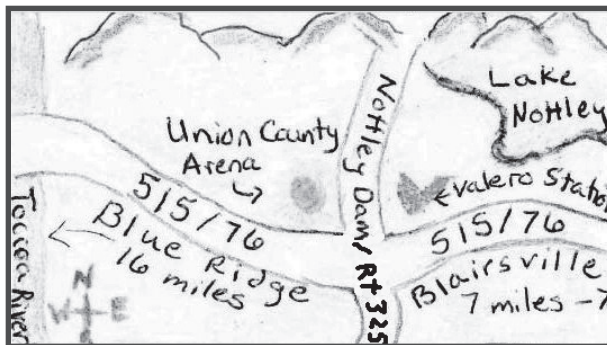 Lake
Nottley
Union County
Arena
Nottley Dam/Rt 325
Valero Station
515/76
515/76
Blue Ridge
16 miles
Blairsville
7 miles -7
Toccoa River
N
W E